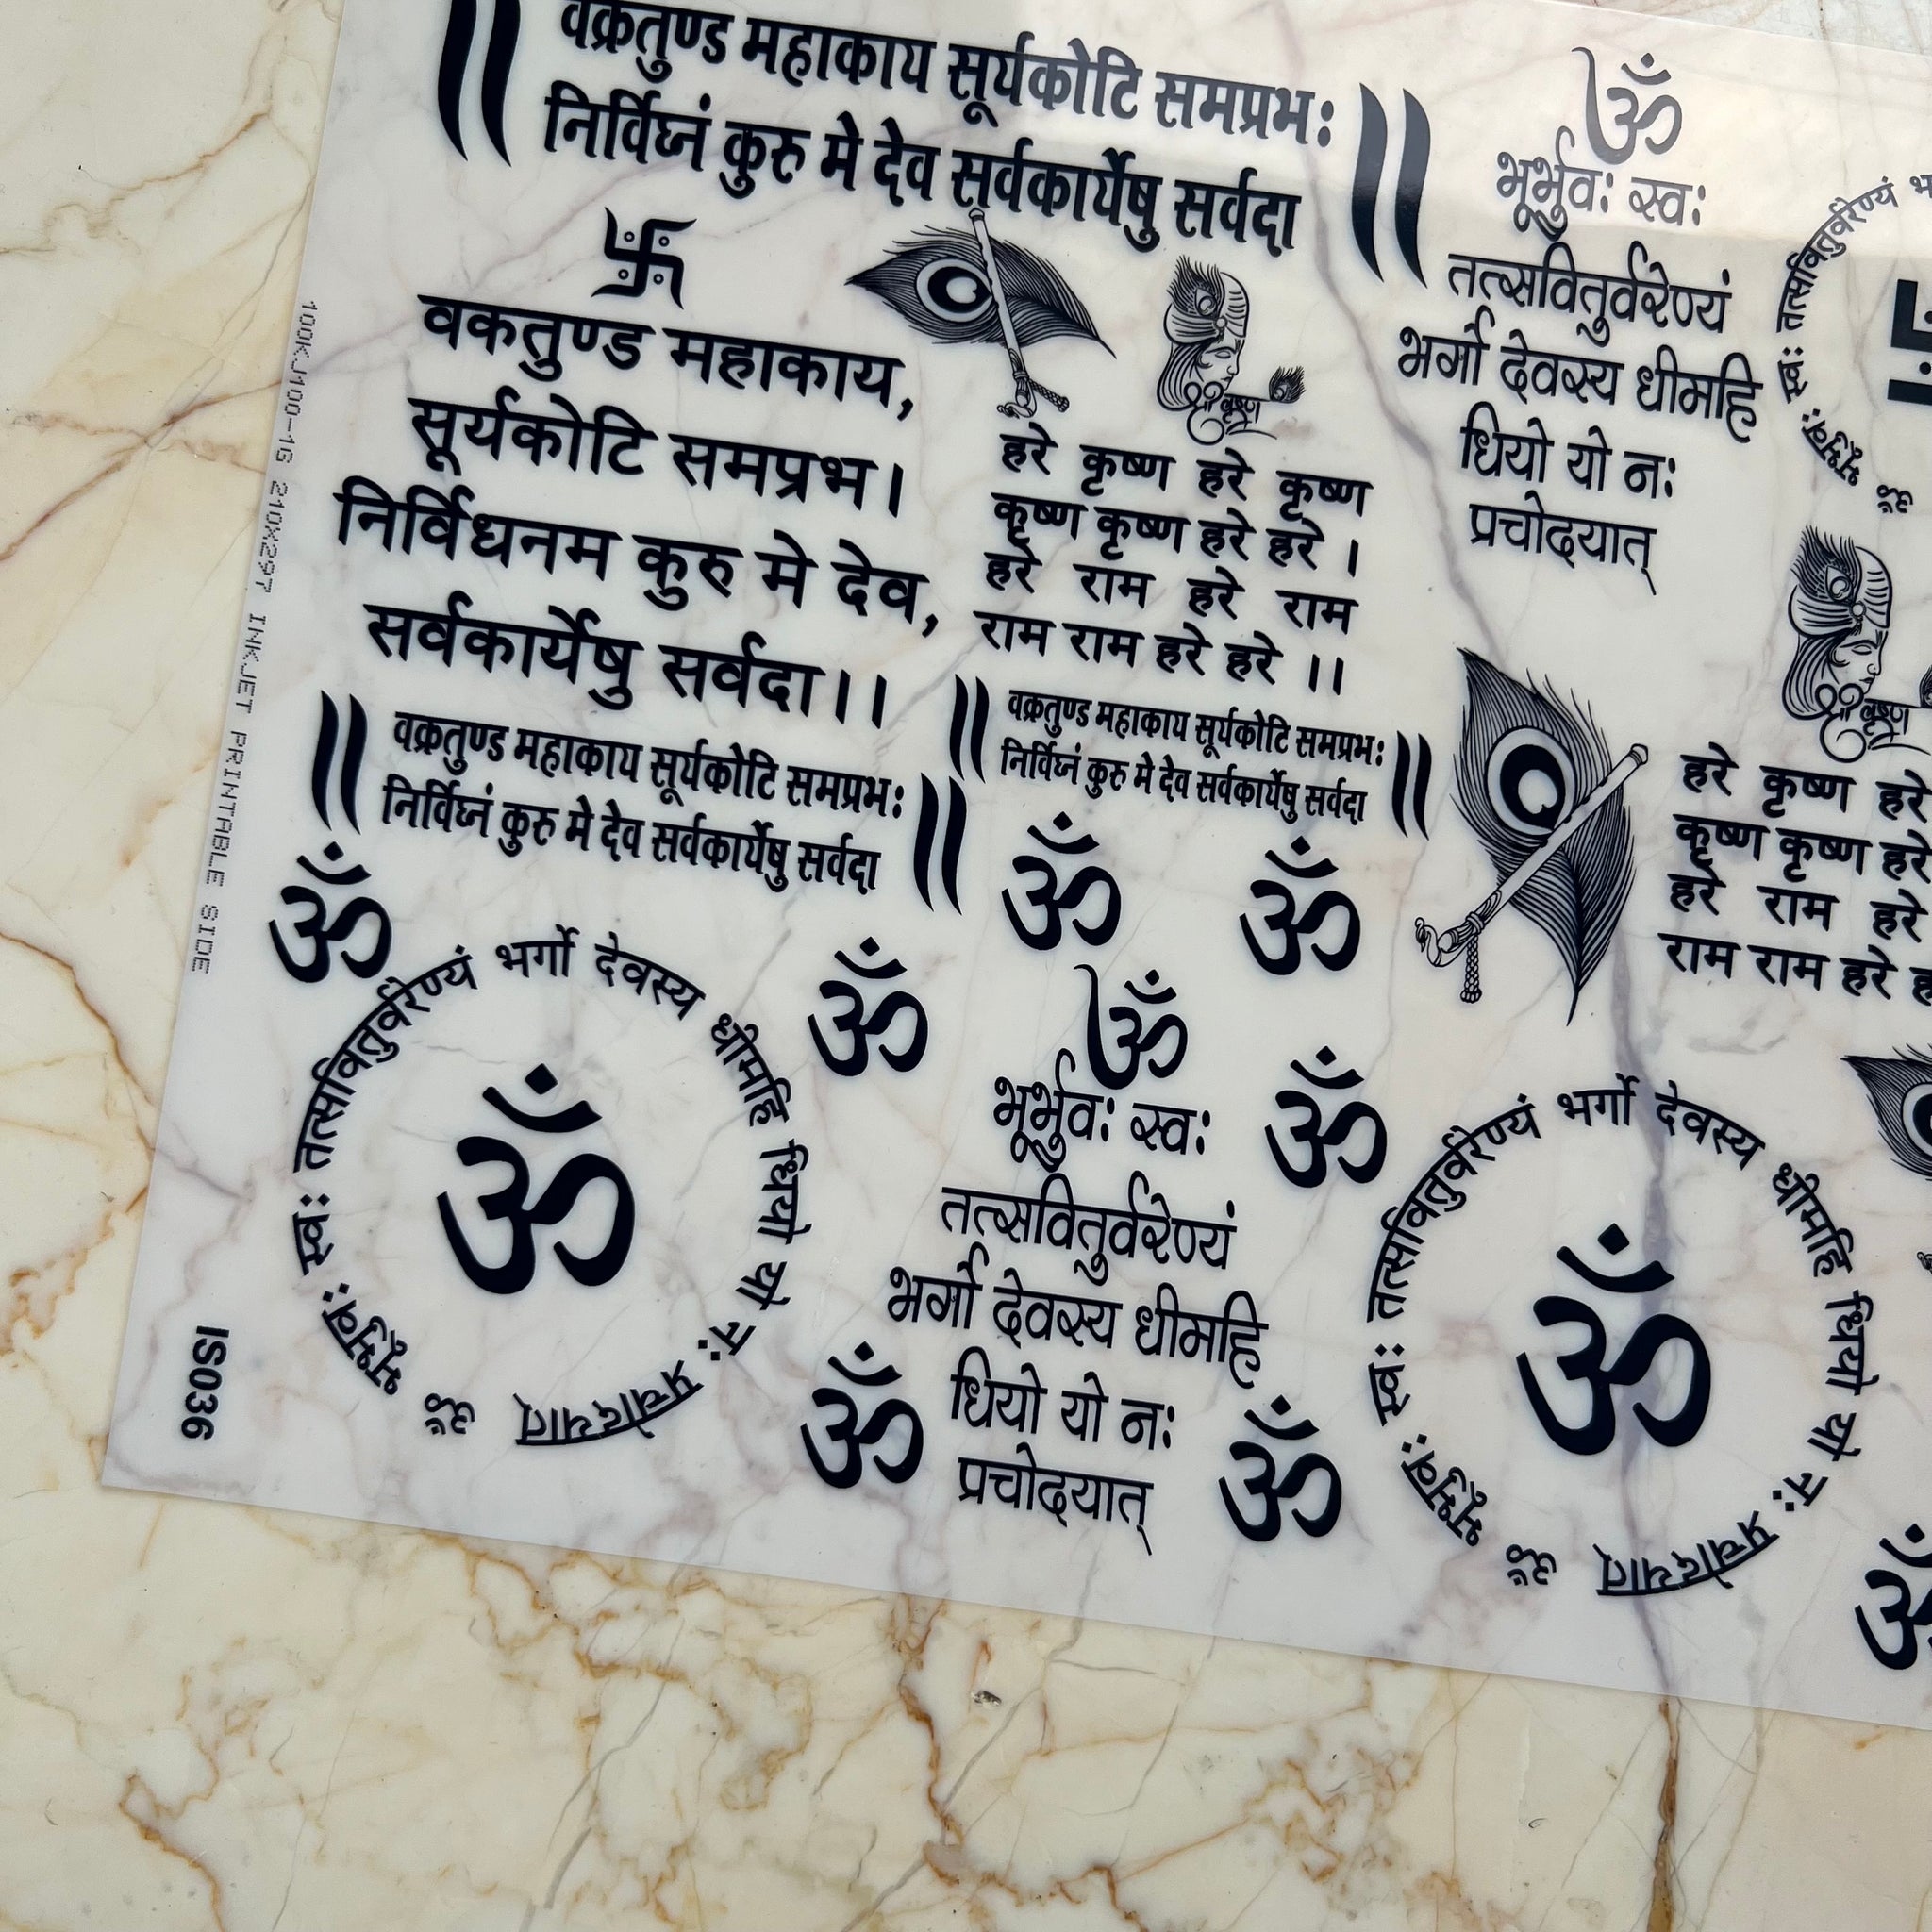 वक्रतुण्ड महाकाय सूर्यकोटि समप्रभः
निर्विघ्नं कुरु मे देव सर्वकार्येषु सर्वदा
वकतुण्ड महाकाय,
सूर्यकोटि समप्रभ।
निर्विधनम कुरु मे देव,
सर्वकार्येषु सर्वदा।।
श्री कृष्ण
हरे कृष्ण हरे कृष्ण
कृष्ण कृष्ण हरे हरे ।
हरे राम हरे राम
राम राम हरे हरे ।।
ॐ
भूर्भुवः स्वः
तत्सवितुर्वरेण्यं
भर्गो देवस्य धीमहि
धियो यो नः
प्रचोदयात्
ॐ भूर्भुवः स्वः तत्सवितुर्वरेण्यं
वक्रतुण्ड महाकाय सूर्यकोटि समप्रभः
निर्विघ्नं कुरु मे देव सर्वकार्येषु सर्वदा
वक्रतुण्ड महाकाय सूर्यकोटि समप्रभः
निर्विघ्नं कुरु मे देव सर्वकार्येषु सर्वदा
श्री कृष्ण
हरे कृष्ण हरे
कृष्ण कृष्ण हरे
हरे राम हरे
राम राम हरे
ॐ
ॐ
ॐ
ॐ
ॐ भूर्भुवः स्वः तत्सवितुर्वरेण्यं भर्गो देवस्य धीमहि धियो यो नः प्रचोदयात्
ॐ
ॐ
भूर्भुवः स्वः
तत्सवितुर्वरेण्यं
भर्गो देवस्य धीमहि
धियो यो नः
प्रचोदयात्
ॐ
ॐ
ॐ
ॐ भूर्भुवः स्वः तत्सवितुर्वरेण्यं भर्गो देवस्य धीमहि धियो यो नः प्रचोदयात्
ॐ
ॐ
100KJ100-1G 210X297 INKJET PRINTABLE SIDE
IS036